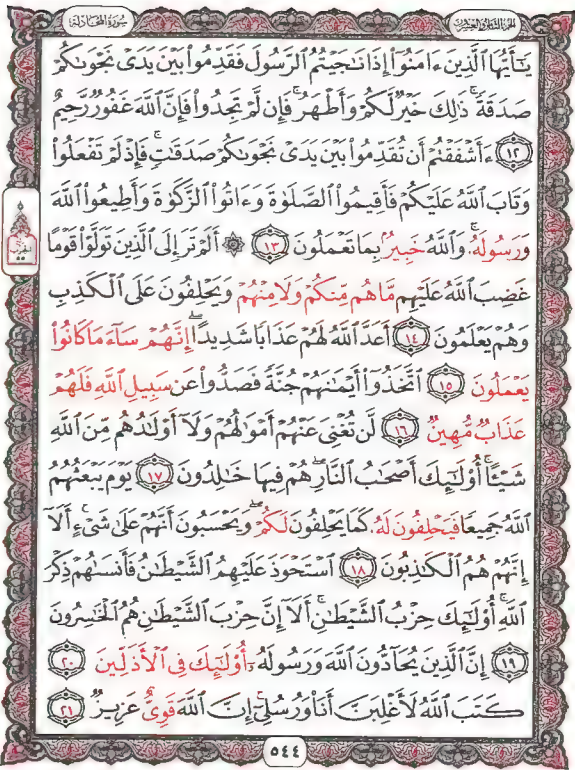 سُورَةُ المُجَادلة
الجزء الثامن والعشرون
يَٰٓأَيُّهَا ٱلَّذِينَ ءَامَنُوٓا۟ إِذَا نَٰجَيْتُمُ ٱلرَّسُولَ فَقَدِّمُوا۟ بَيْنَ يَدَىْ نَجْوَىٰكُمْ
صَدَقَةً ۚ ذَٰلِكَ خَيْرٌ لَّكُمْ وَأَطْهَرُ ۚ فَإِن لَّمْ تَجِدُوا۟ فَإِنَّ ٱللَّهَ غَفُورٌ رَّحِيمٌ
١٢ ءَأَشْفَقْتُمْ أَن تُقَدِّمُوا۟ بَيْنَ يَدَىْ نَجْوَىٰكُمْ صَدَقَٰتٍ ۚ فَإِذْ لَمْ تَفْعَلُوا۟
وَتَابَ ٱللَّهُ عَلَيْكُمْ فَأَقِيمُوا۟ ٱلصَّلَوٰةَ وَءَاتُوا۟ ٱلزَّكَوٰةَ وَأَطِيعُوا۟ ٱللَّهَ
وَرَسُولَهُۥ ۚ وَٱللَّهُ خَبِيرٌۢ بِمَا تَعْمَلُونَ ١٣ ۞ أَلَمْ تَرَ إِلَى ٱلَّذِينَ تَوَلَّوْا۟ قَوْمًا
غَضِبَ ٱللَّهُ عَلَيْهِم مَّا هُم مِّنكُمْ وَلَا مِنْهُمْ وَيَحْلِفُونَ عَلَى ٱلْكَذِبِ
وَهُمْ يَعْلَمُونَ ١٤ أَعَدَّ ٱللَّهُ لَهُمْ عَذَابًا شَدِيدًا ۖ إِنَّهُمْ سَآءَ مَا كَانُوا۟
يَعْمَلُونَ ١٥ ٱتَّخَذُوٓا۟ أَيْمَٰنَهُمْ جُنَّةً فَصَدُّوا۟ عَن سَبِيلِ ٱللَّهِ فَلَهُمْ
عَذَابٌ مُّهِينٌ ١٦ لَّن تُغْنِىَ عَنْهُمْ أَمْوَٰلُهُمْ وَلَآ أَوْلَٰدُهُم مِّنَ ٱللَّهِ
شَيْـًٔا ۚ أُو۟لَٰٓئِكَ أَصْحَٰبُ ٱلنَّارِ ۖ هُمْ فِيهَا خَٰلِدُونَ ١٧ يَوْمَ يَبْعَثُهُمُ
ٱللَّهُ جَمِيعًا فَيَحْلِفُونَ لَهُۥ كَمَا يَحْلِفُونَ لَكُمْ ۖ وَيَحْسَبُونَ أَنَّهُمْ عَلَىٰ شَىْءٍ ۚ أَلَآ
إِنَّهُمْ هُمُ ٱلْكَٰذِبُونَ ١٨ ٱسْتَحْوَذَ عَلَيْهِمُ ٱلشَّيْطَٰنُ فَأَنسَىٰهُمْ ذِكْرَ
ٱللَّهِ ۚ أُو۟لَٰٓئِكَ حِزْبُ ٱلشَّيْطَٰنِ ۚ أَلَآ إِنَّ حِزْبَ ٱلشَّيْطَٰنِ هُمُ ٱلْخَٰسِرُونَ
١٩ إِنَّ ٱلَّذِينَ يُحَآدُّونَ ٱللَّهَ وَرَسُولَهُۥٓ أُو۟لَٰٓئِكَ فِى ٱلْأَذَلِّينَ ٢٠
كَتَبَ ٱللَّهُ لَأَغْلِبَنَّ أَنَا۠ وَرُسُلِىٓ ۚ إِنَّ ٱللَّهَ قَوِىٌّ عَزِيزٌ ٢١
٥٤٤